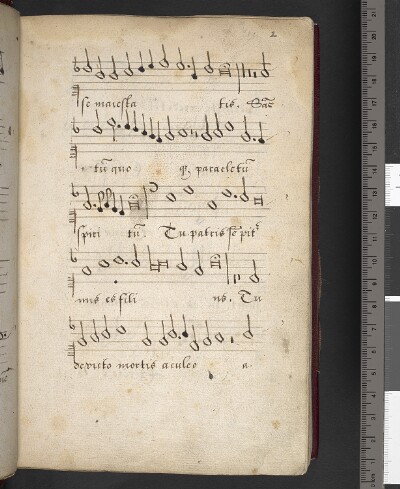 2
se maiesta tis. Sāc
tū quo q, paracletū
spiri tū Tu patris sēpit
nus es fili us. Tu
devicto mortis aculeo a